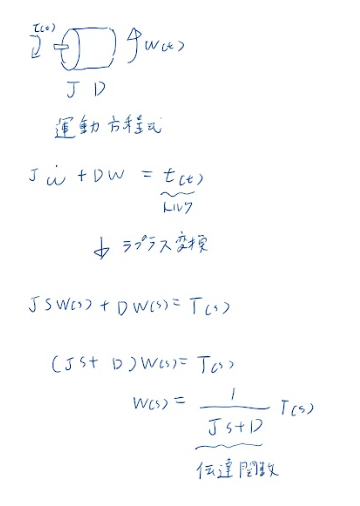 τ(t) W(t)
J D
運動方程式
Jẇ + DW = t(t)
トルク
↓ ラプラス変換
JSW(s) + DW(s) = T(s)
(JS + D)W(s) = T(s)
W(s) = 1/(JS+D) T(s)
伝達関数